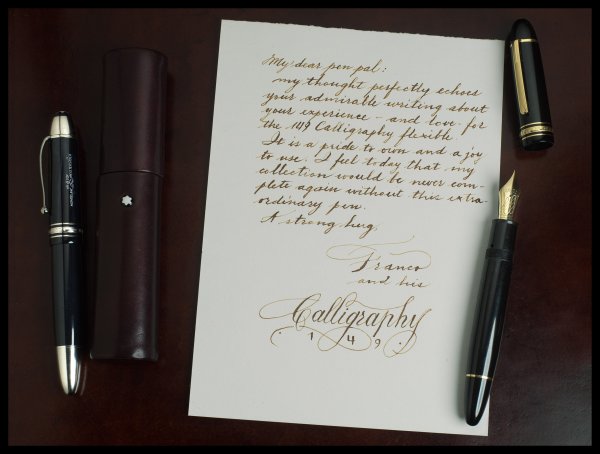 My dear pen pal:
my thought perfectly echoes
your admirable writing about
your experience - and love - for
the 149 Calligraphy flexible.
It is a pride to own and a joy
to use. I feel today that my
collection would be never com-
plete again without this extra-
ordinary pen.
A strong hug,
Franco
and his
Calligraphy
149